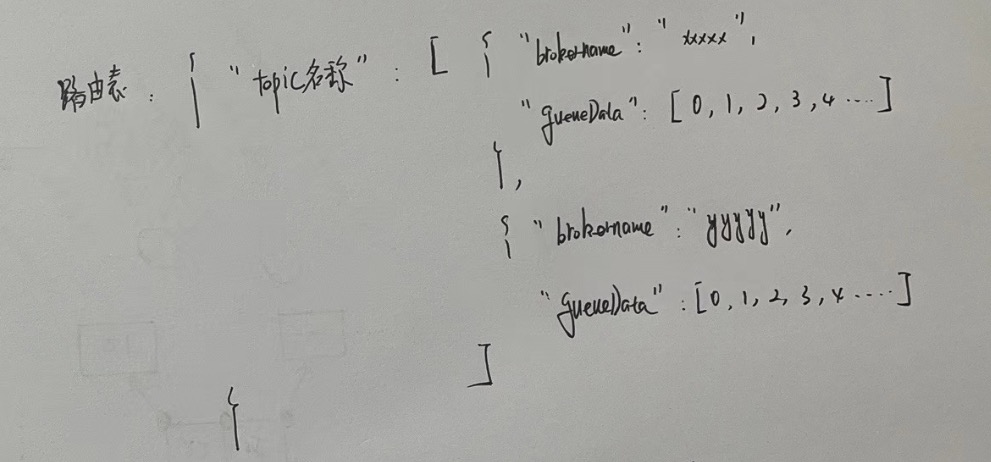 路由表 : { "topic名称" : [ { "brokername" : "xxxxx",
"queueData" : [ 0, 1, 2, 3, 4 ····]
},
{ "brokername" : "yyyyy",
"queueData" : [0, 1, 2, 3, 4 ·····]
]
}